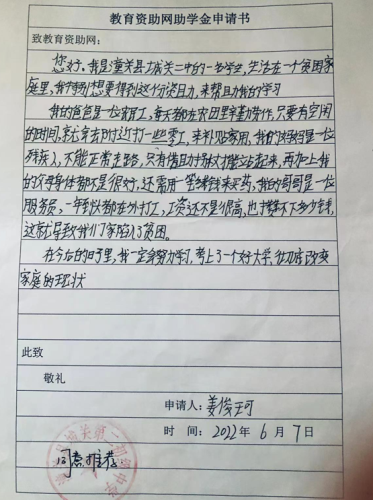 教育资助网助学金申请书
致教育资助网:
您好。我是潼关县城关二中的一名学生,生活在一个贫困家
庭里,我特别想要得到这份资助,来帮助我的学习
我的爸爸是一位农民,每天都在农田里辛勤劳作,只要有空闲
的时间,就拿去附近打一些零工,来补贴家用,我的妈妈是一位
残疾人,不能正常走路,只有借助力才能站起来,再加上我
的父母身体都不是很好,还需用一笔钱来买药,我的哥哥是一位
服务员,一年到头都在外打工,工资还不是很高,也攒不下多少钱,
这就导致我们家陷入了贫困。
在今后的日子里,我一定会努力学习,考上一个好大学,彻底改变
家庭的现状
此致
敬礼
申请人:姜俊珂
时 间:2022年6月7日
同意推荐